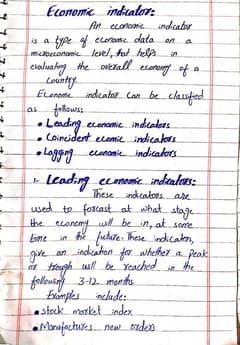 Economic indicator:
An economic indicator
is a type of economic data on a
microeconomic level, that helps in
evaluating the overall economy of a
Country.
Economic indicator can be classified
as follows:
• Leading economic indicators
• Coincident ecomic indicators
• Lagging economic indicators
1- Leading economic indicators:
These indicators are
used to forcast at what stage
the economy will be in, at some
time in the future. These indicators,
give an indication for whether a peak
or trough will be reached in the
following 3-12 months
Examples include:
• stock market index
• Manufactures new orders